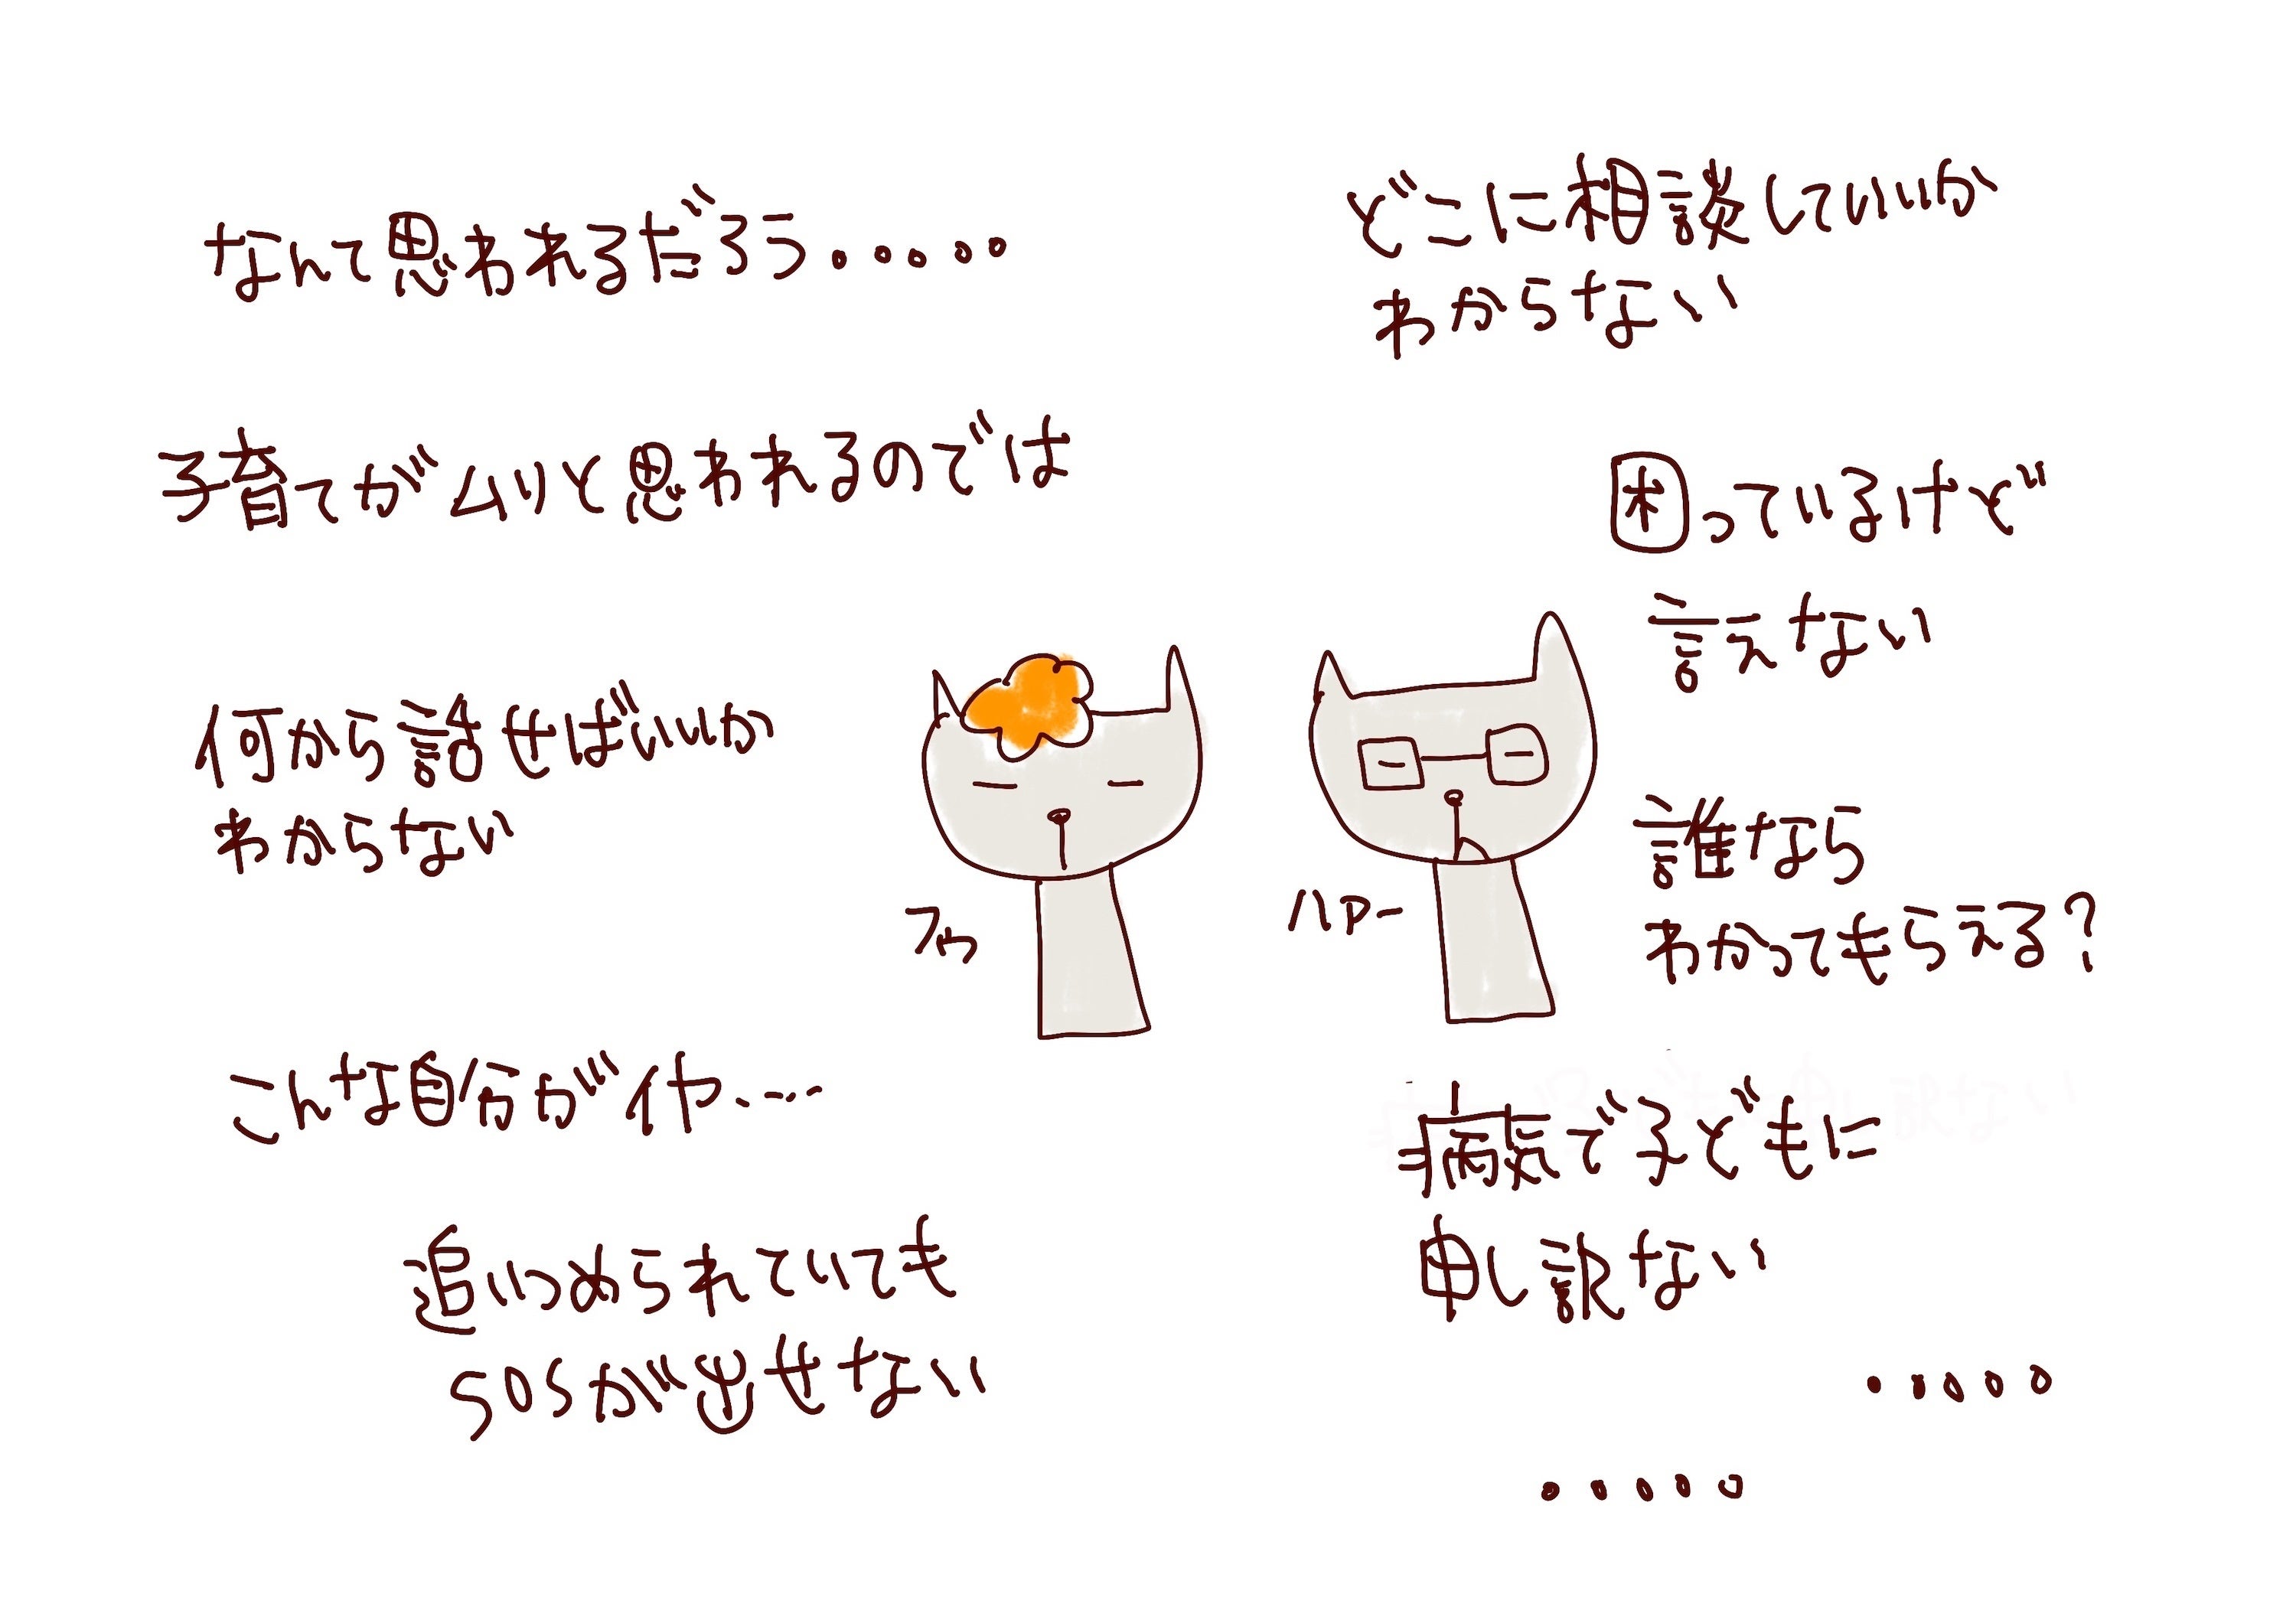 なんて思われるだろう.....
子育てがムリと思われるのでは
何から話せばいいか
わからない
こんな自分がイヤ....
追いつめられていても
SOSが出せない
フゥ
ハァー
どこに相談していいか
わからない
困っているけど
言えない
誰なら
わかってもらえる?
病気で子どもに
申し訳ない
.....
.....